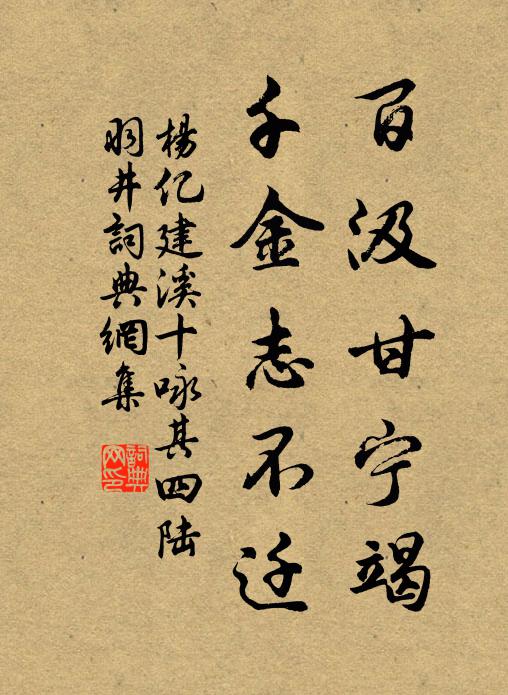 百汲甘宁竭
千金志不迁
楊亿建溪十咏其四陆
羽井詞典網集
詞典网印